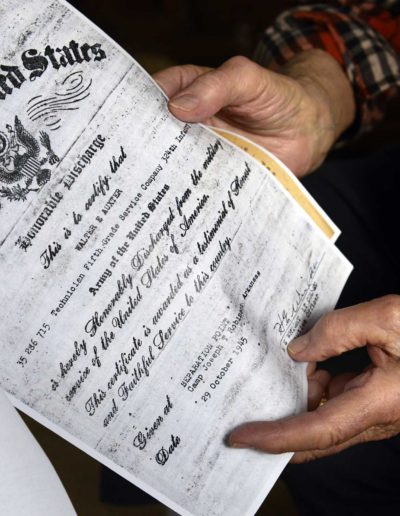 ed States
Honorable Discharge
This is to certify that
WALTER E AUXTER
35 286 715 Technician Fifth Grade Service Company 34th
Army of the United States
is hereby Honorably Discharged from the military
service of the United States of America.
This certificate is awarded as a testimonial of Honest
and Faithful Service to this country.
Given at SEPARATION POINT
Camp Joseph T Robinson Arkansas
Date 29 October 1945